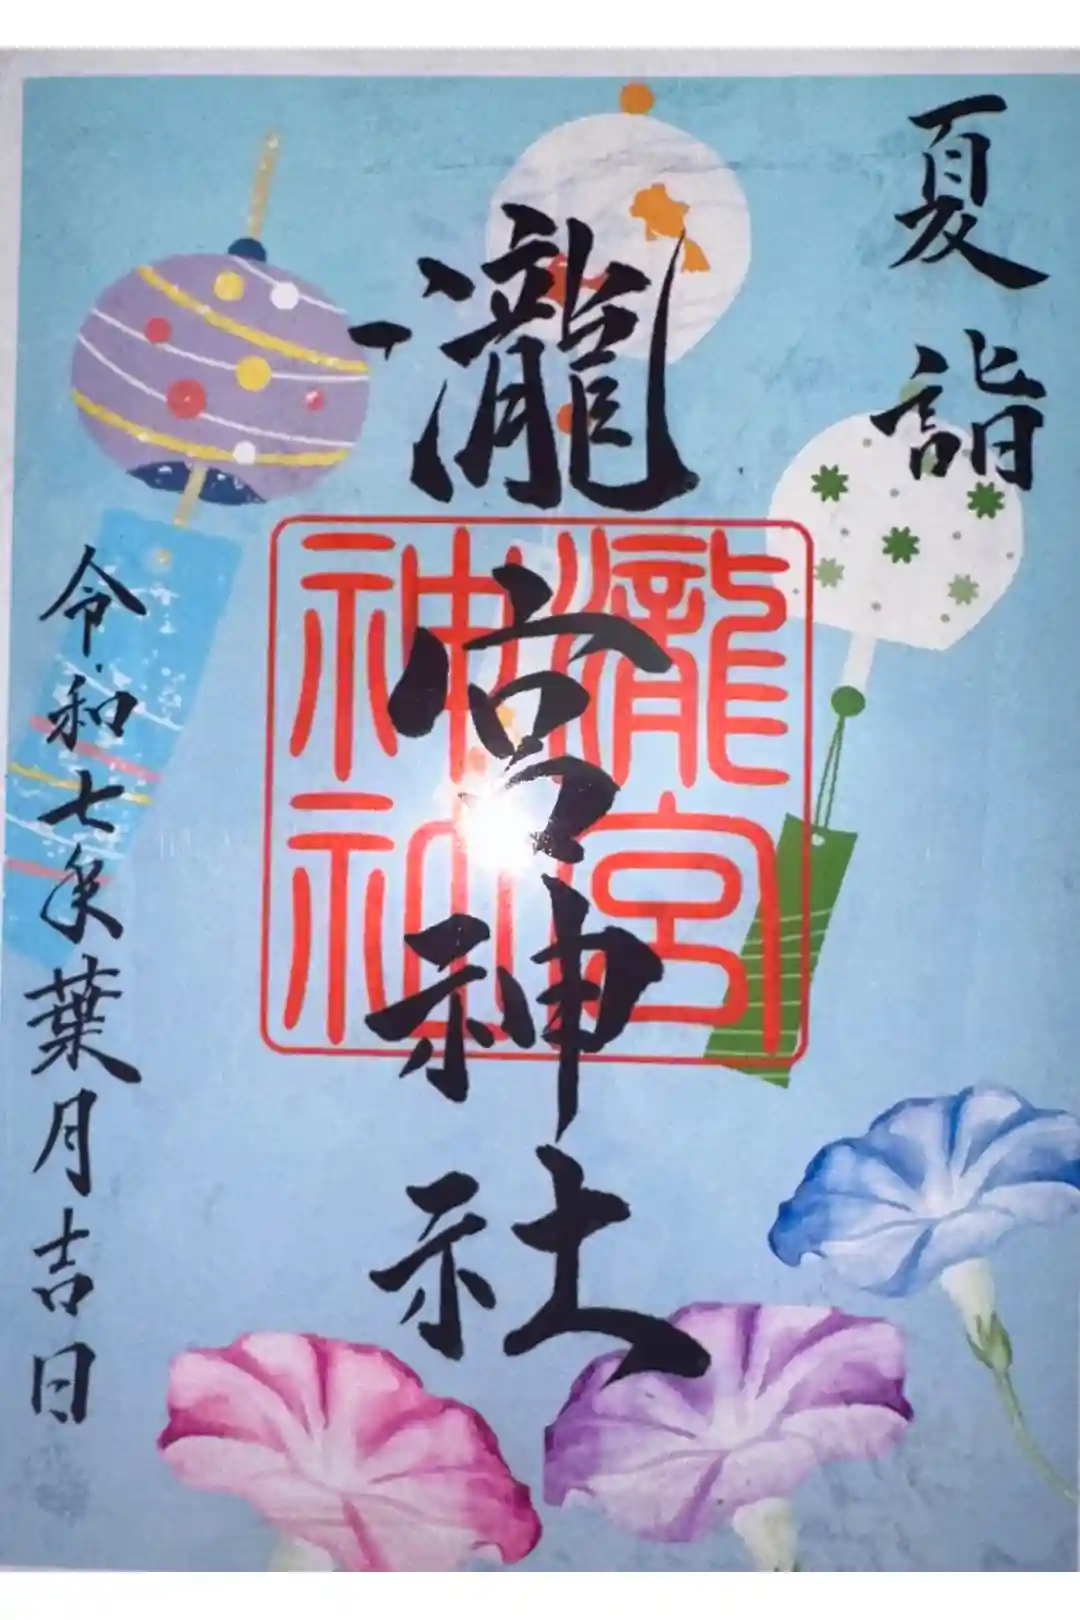 夏詣
瀧宮神社
瀧宮
神社
令和七年葉月吉日